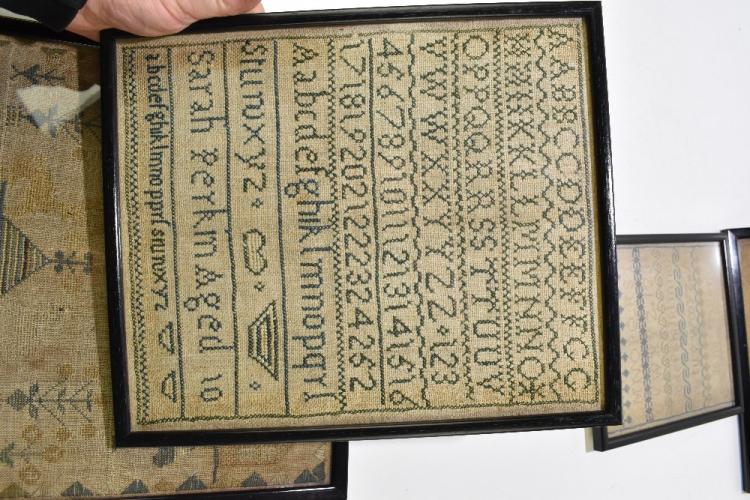 AABBCCDDEEFFGG
HHIIKKLLMMNNO
OPPQQRRSSTTUUV
VWWXXYYZZ·123
45678910111213141516
1718192021222324252
aabcdefghiklmnopqrſ
stuvwxyz·
Sarah Perkin Aged 10
abcdefghiklmnopqrſstuvwxyz